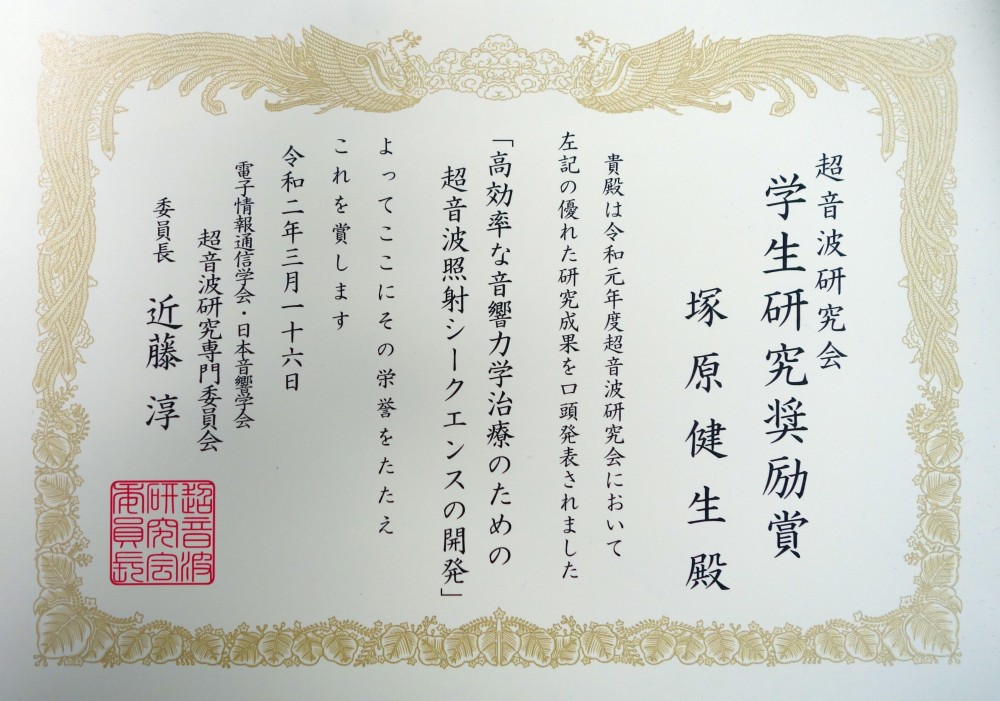 超音波研究会
学生研究奨励賞
塚原健生殿
貴殿は令和元年度超音波研究会において
左記の優れた研究成果を口頭発表されました
「高効率な音響力学治療のための
超音波照射シークエンスの開発」
よってここにその栄誉をたたえ
これを賞します
令和二年三月一十六日
電子情報通信学会・日本音響学会
超音波研究専門委員会
委員長 近藤 淳
超音波
研究会
委員長